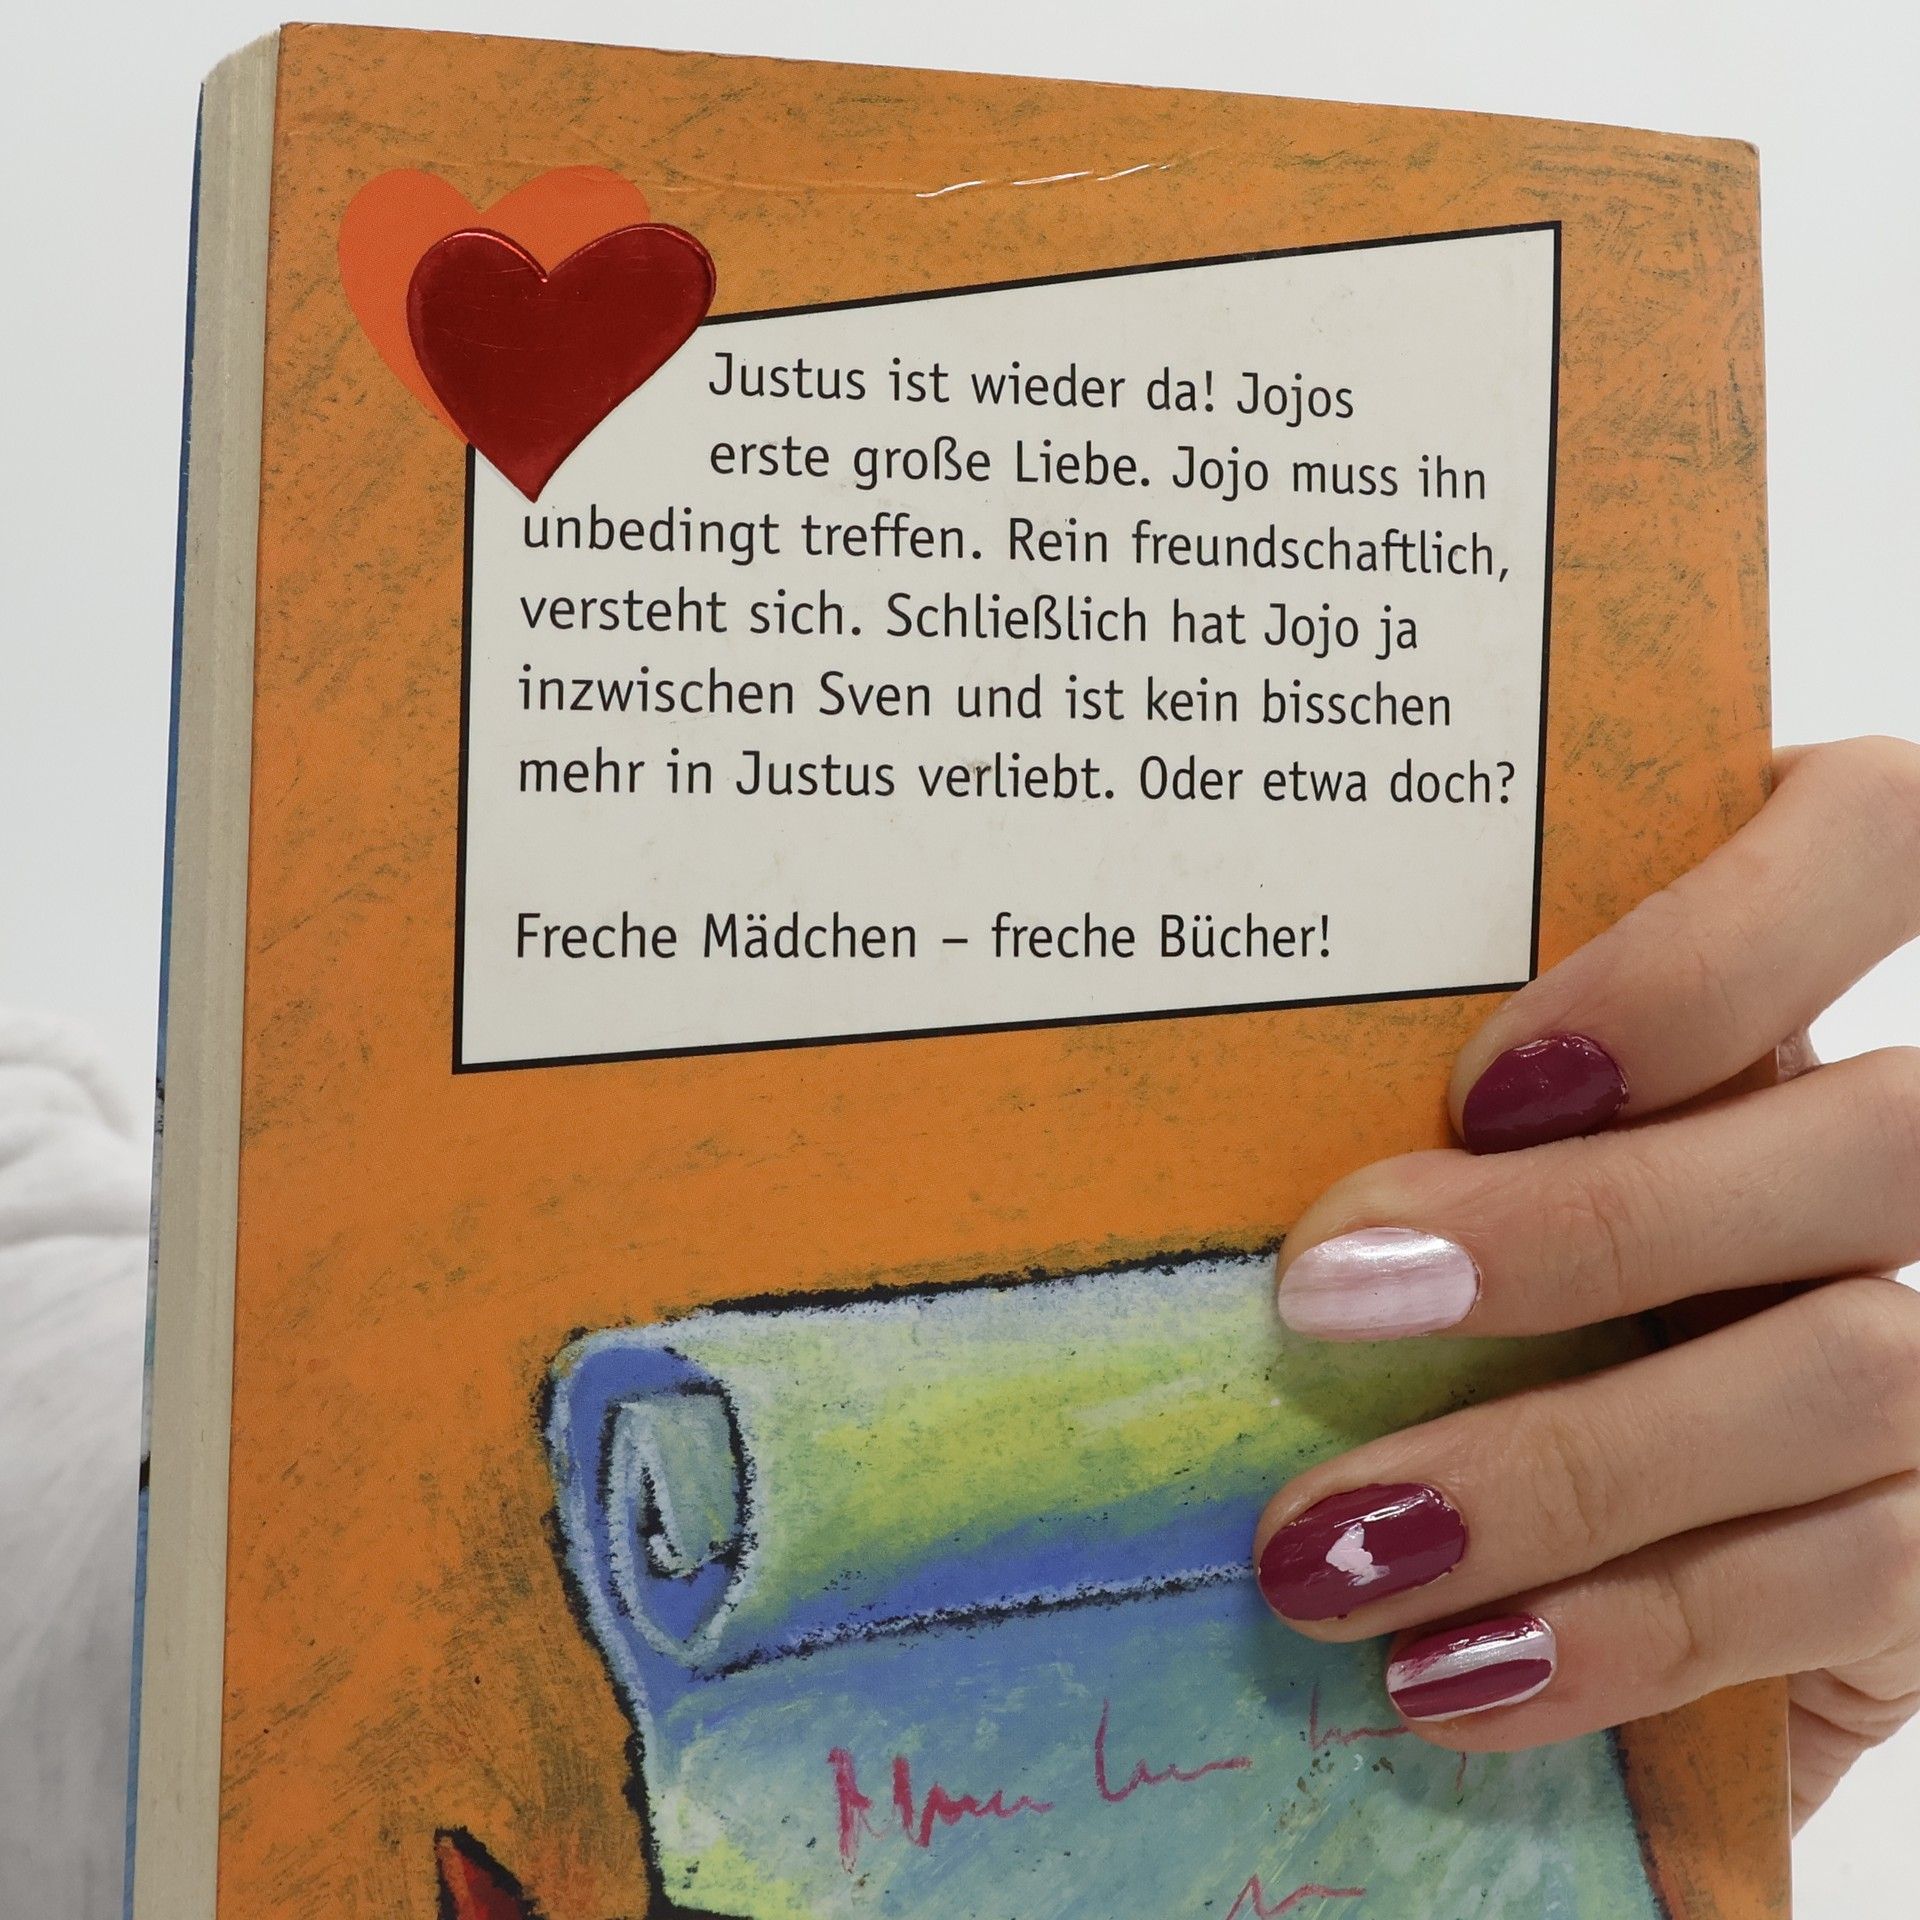 Justus ist wieder da! Jojos
erste große Liebe. Jojo muss ihn
unbedingt treffen. Rein freundschaftlich,
versteht sich. Schließlich hat Jojo ja
inzwischen Sven und ist kein bisschen
mehr in Justus verliebt. Oder etwa doch?
Freche Mädchen – freche Bücher!